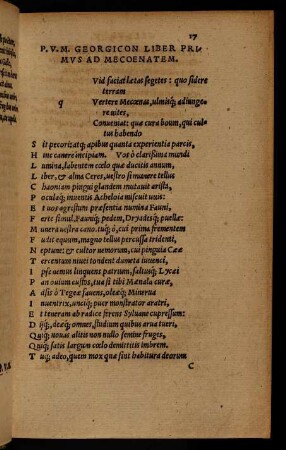 17
P. V. M. GEORGICON LIBER PRI
MVS AD MECOENATEM.
Vid faciat lætas segetes: quo sidere
terram
q Vertere Mecœnas, ulmisq; adiunge-
re uites,
Conueniat: quæ cura boum, qui cul-
tus habendo
S it pecori: atq; apibus quanta experientia parcis,
H inc canere incipiam. Vos ô clarissima mundi
L umina, labentem cœlo quæ ducitis annum,
L iber, & alma Ceres, uestro si munere tellus
C haoniam pingui glandem mutauit arista,
P oculaq; inuentis Acheloia miscuit uuis:
E t uos agrestum præsentia numina Fauni,
F erte simul, Fauniq; pedem, Dryadesq; puellæ:
M unera uestra cano. tuq; ô, cui prima frementem
F udit equum, magno tellus percussa tridenti,
N eptune: & cultor nemorum, cui pinguia Cææ
T ercentum niuei tondent dumeta iuuenci,
I pse nemus linquens patrium, saltusq; Lycæi
P an ouium custos, tua si tibi Mænala curæ,
A dsis ô Tegeæe fauens, oleæq; Minerua
I nuentrix, uncíq; puer monstrator aratri,
E t teneram ab radice ferens Syluane cupressum:
D ijq; deæq; omnes, studium quibus arua tueri,
Q uiq; nouas alitis non nullo semine fruges,
Q uiq; satis largum cœlo demittitis imbrem.
T uq; adeo, quem mox quæ sint habitura deorum
C